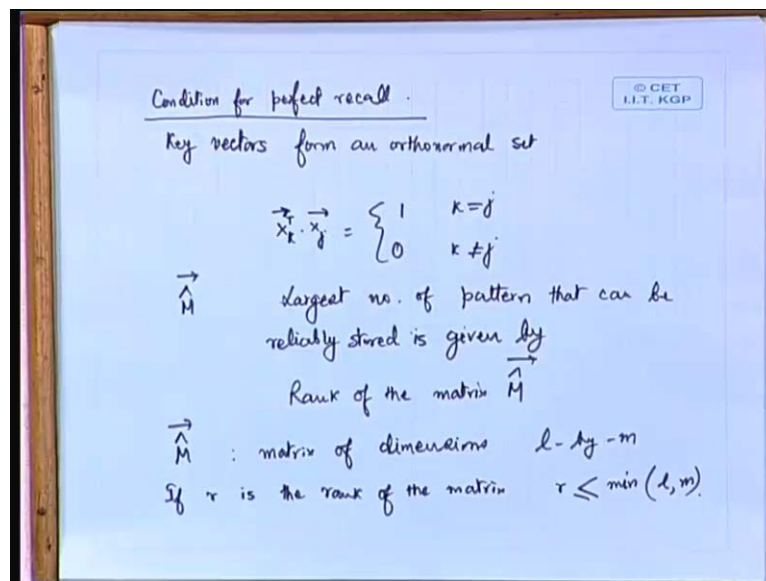 Condition for perfect recall.
© CET
I.I.T. KGP
Key vectors form an orthonormal set
x⃗ₖᵀ · x⃗ⱼ = { 1 k = j
0 k ≠ j
M̂⃗ Largest no. of pattern that can be
reliably stored is given by
Rank of the matrix M̂⃗
M̂⃗ : matrix of dimensions l-by-m
If r is the rank of the matrix r ≤ min (l, m).